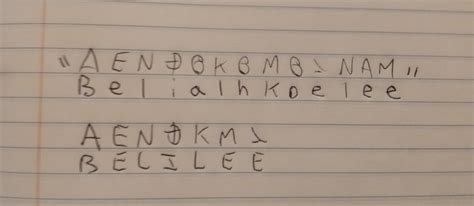 "AENΦΘKΘMΘݎNAM"
Belialhkoelee
AENΦKMݎ
BELILEE